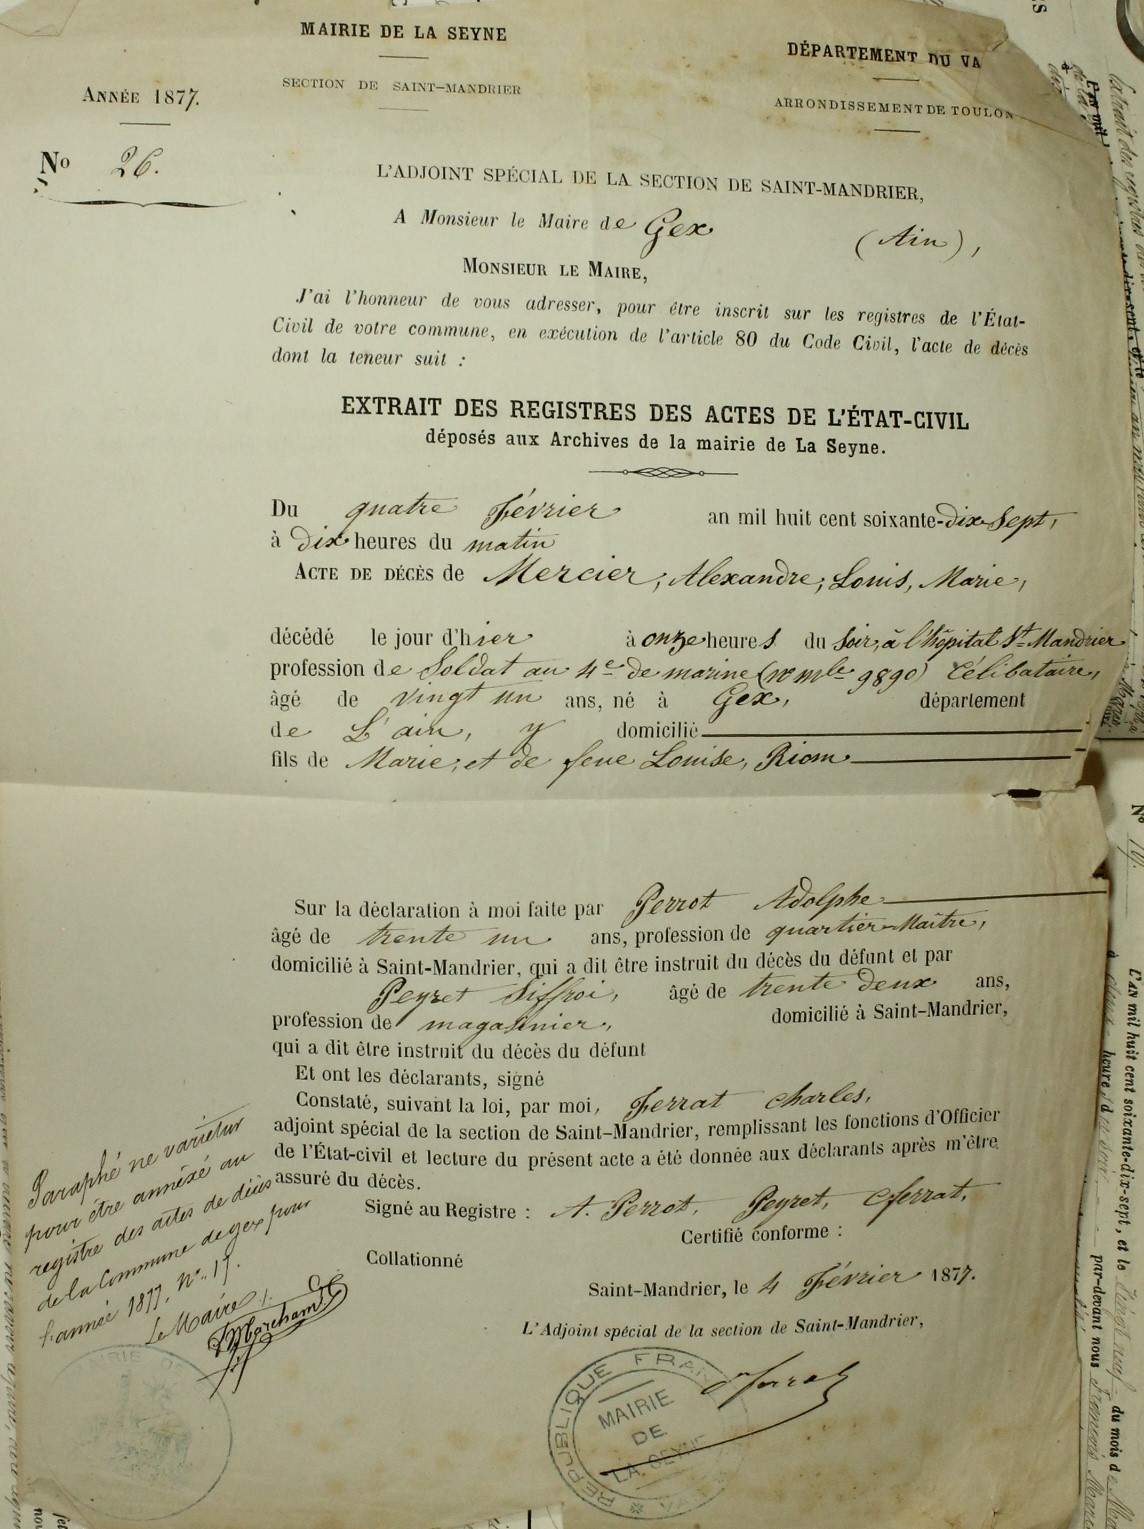 MAIRIE DE LA SEYNE
SECTION DE SAINT-MANDRIER
DÉPARTEMENT DU VA
ARRONDISSEMENT DE TOULON
ANNÉE 1877.
No 26.
L'ADJOINT SPÉCIAL DE LA SECTION DE SAINT-MANDRIER,
A Monsieur le Maire de Gex (Ain),
MONSIEUR LE MAIRE,
J'ai l'honneur de vous adresser, pour être inscrit sur les registres de l'État-
Civil de votre commune, en exécution de l'article 80 du Code Civil, l'acte de décès
dont la teneur suit :
EXTRAIT DES REGISTRES DES ACTES DE L'ÉTAT-CIVIL
déposés aux Archives de la mairie de La Seyne.
Du quatre février an mil huit cent soixante-dix-sept,
à dix heures du matin
ACTE DE DÉCÈS de Mercier, Alexandre, Louis, Marie,
décédé le jour d'hier à onze heures du soir, à l'hôpital St Mandrier
profession de soldat au 4e de marine (no mle 9890) Célibataire,
âgé de vingt un ans, né à Gex, département
de L'ain, y domicilié
fils de Marie, et de feue Louise, Riom
Sur la déclaration à moi faite par Perrot Adolphe
âgé de trente un ans, profession de quartier-Maître,
domicilié à Saint-Mandrier, qui a dit être instruit du décès du défunt et par
Peyret Siffroi, âgé de trente deux ans,
profession de magasinier, domicilié à Saint-Mandrier,
qui a dit être instruit du décès du défunt
Et ont les déclarants, signé
Constaté, suivant la loi, par moi, Ferrat Charles,
adjoint spécial de la section de Saint-Mandrier, remplissant les fonctions d'Officier
de l'État-civil et lecture du présent acte a été donnée aux déclarants après m'être
assuré du décès.
Signé au Registre : A. Perrot, Peyret, C Ferrat,
Certifié conforme :
Collationné
Saint-Mandrier, le 4 Février 1877.
L'Adjoint spécial de la section de Saint-Mandrier,
Paraphé ne varietur
pour être annéxé au
registre des actes de décès
de la Commune de gex pour
l'année 1877, No 17.
Le Maire,
MAIRIE DE
RÉPUBLIQUE FRAN
MAIRIE
DE
LA SEYNE
L'AN mil huit cent soixante-dix-sept, et le
du mois d
heure
par-devant nous